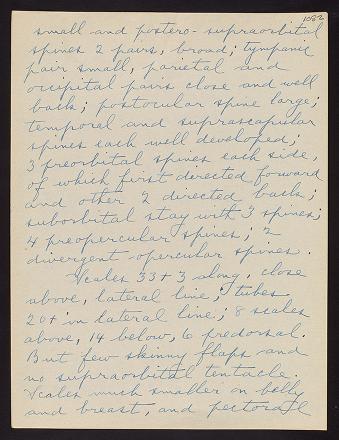 1082
small and postero-supraorbital
spines 2 pairs, broad; tympanic
pair small, parietal and
occipital pairs close and well
back; postocular spine large;
temporal and suprascapular
spines each well developed;
3 preorbital spines each side,
of which first directed forward
and other 2 directed back;
suborbital stay with 3 spines;
4 preopercular spines; 2
divergent opercular spines.
Scales 33+3 along, close
above, lateral line; tubes
20+ in lateral line; 8 scales
above, 14 below, 6 predorsal.
But few skinny flaps and
no supraorbital tentacle.
Scales much smaller on belly
and breast, and pectoral